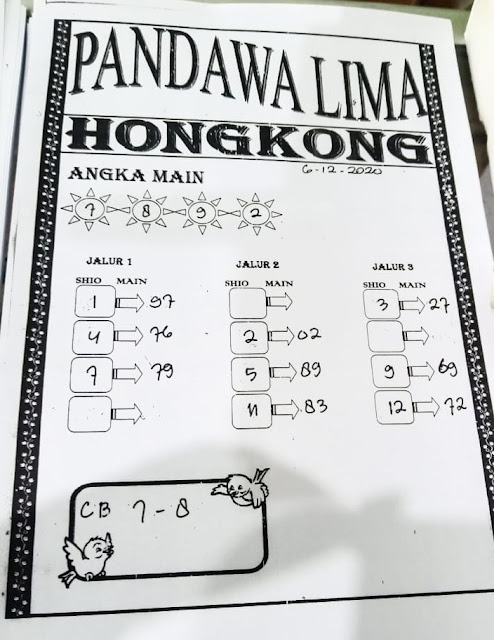 PANDAWA LIMA
HONGKONG
6-12-2020
ANGKA MAIN
7 8 9 2
JALUR 1
SHIO MAIN
1 97
4 76
7 79
JALUR 2
SHIO MAIN
2 02
5 89
11 83
JALUR 3
SHIO MAIN
3 27
9 69
12 72
CB 7-8